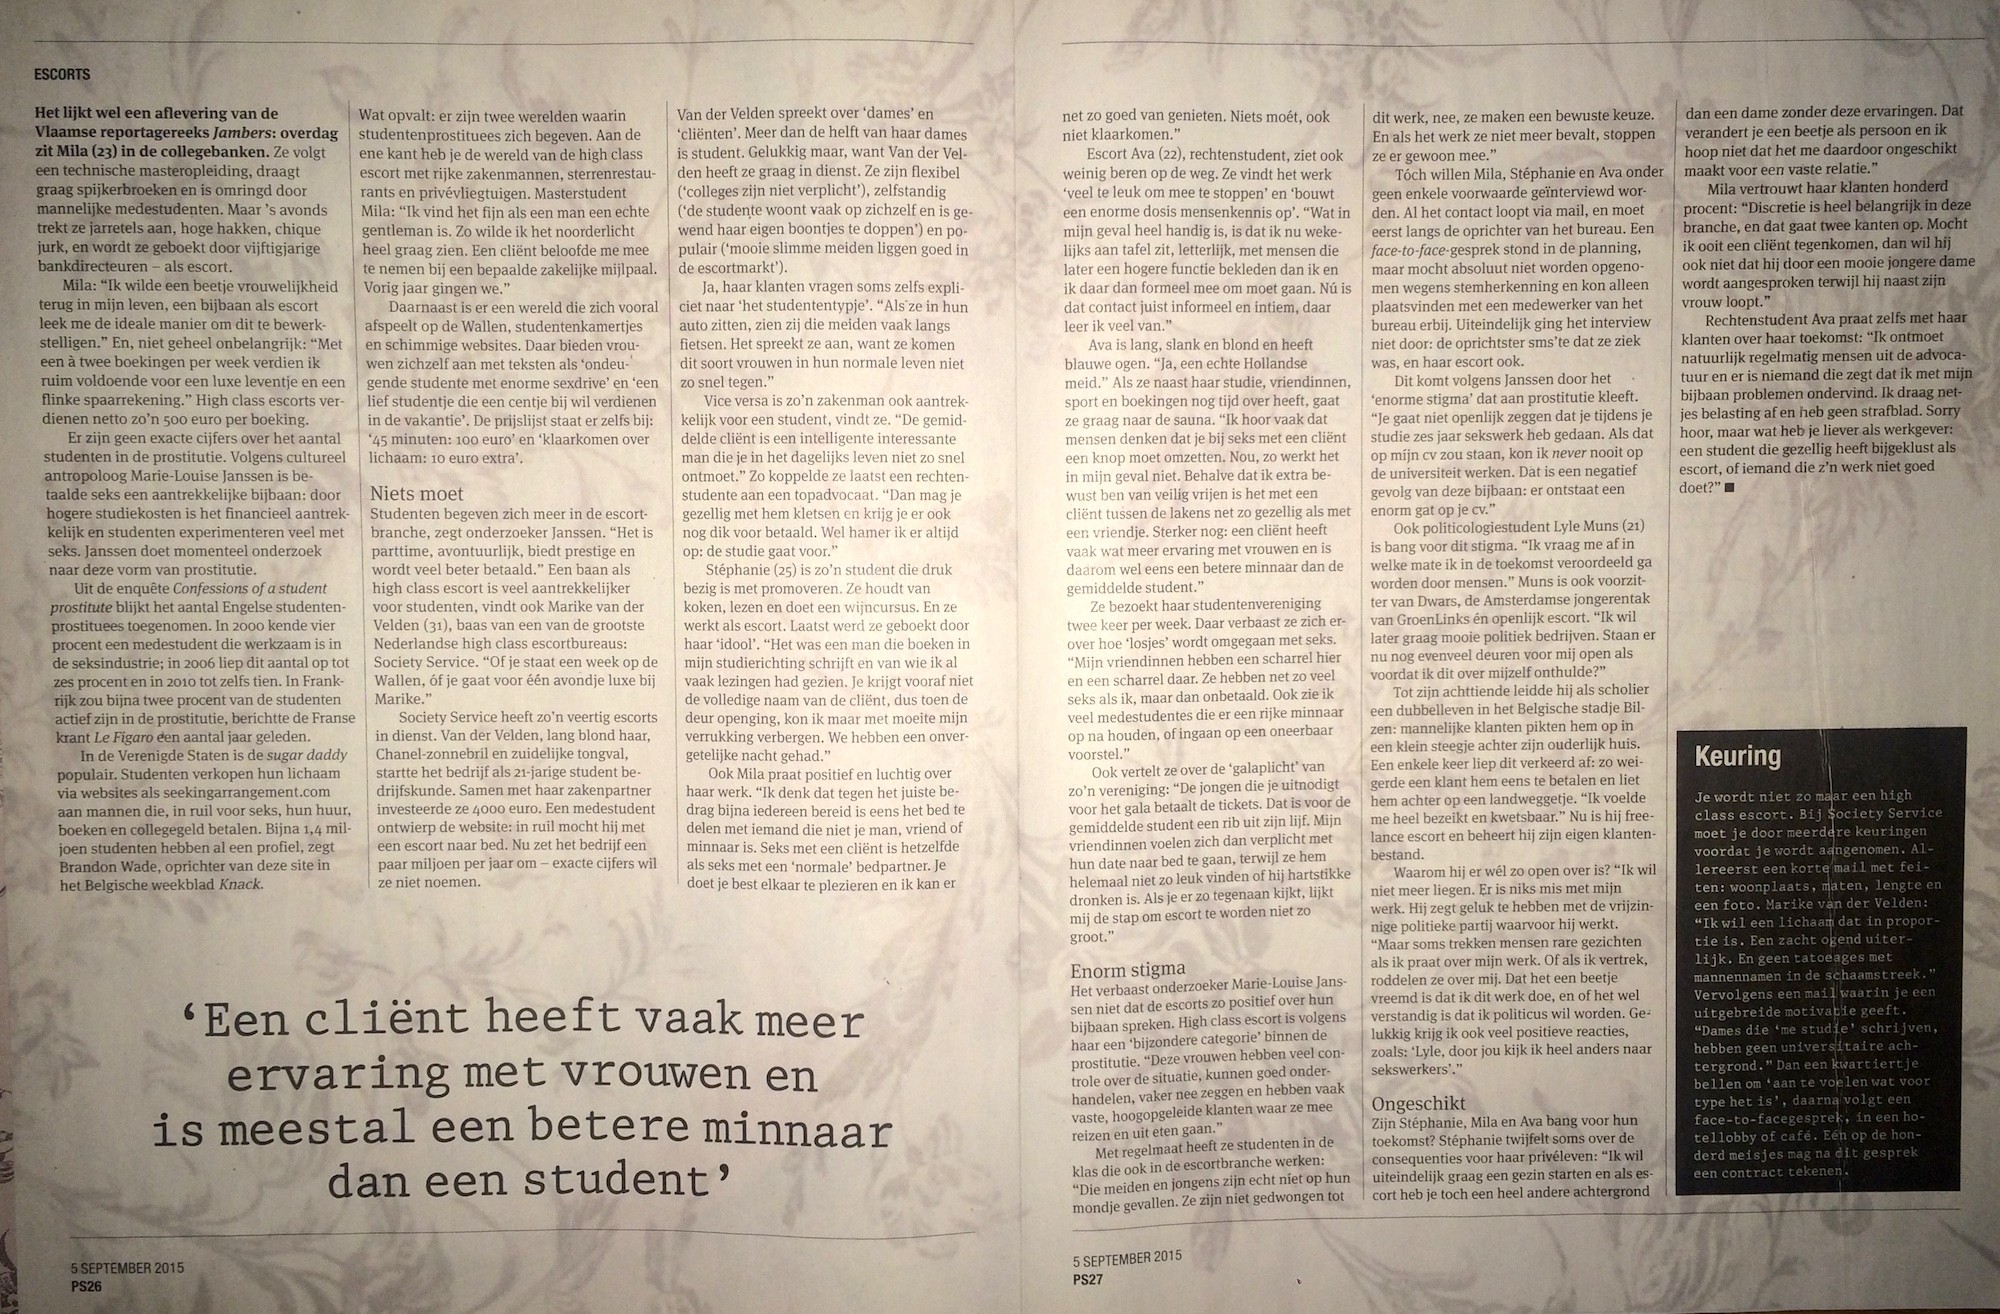 ESCORTS
Het lijkt wel een aflevering van de
Vlaamse reportagereeks Jambers: overdag
zit Mila (23) in de collegebanken. Ze volgt
een technische masteropleiding, draagt
graag spijkerbroeken en is omringd door
mannelijke medestudenten. Maar 's avonds
trekt ze jarretels aan, hoge hakken, chique
jurk, en wordt ze geboekt door vijftigjarige
bankdirecteuren – als escort.
Mila: “Ik wilde een beetje vrouwelijkheid
terug in mijn leven, een bijbaan als escort
leek me de ideale manier om dit te bewerk-
stelligen.” En, niet geheel onbelangrijk: “Met
een à twee boekingen per week verdien ik
ruim voldoende voor een luxe leventje en een
flinke spaarrekening.” High class escorts ver-
dienen netto zo'n 500 euro per boeking.
Er zijn geen exacte cijfers over het aantal
studenten in de prostitutie. Volgens cultureel
antropoloog Marie-Louise Janssen is be-
taalde seks een aantrekkelijke bijbaan: door
hogere studiekosten is het financieel aantrek-
kelijk en studenten experimenteren veel met
seks. Janssen doet momenteel onderzoek
naar deze vorm van prostitutie.
Uit de enquête Confessions of a student
prostitute blijkt het aantal Engelse studenten-
prostituees toegenomen. In 2000 kende vier
procent een medestudent die werkzaam is in
de seksindustrie; in 2006 liep dit aantal op tot
zes procent en in 2010 tot zelfs tien. In Frank-
rijk zou bijna twee procent van de studenten
actief zijn in de prostitutie, berichtte de Franse
krant Le Figaro een aantal jaar geleden.
In de Verenigde Staten is de sugar daddy
populair. Studenten verkopen hun lichaam
via websites als seekingarrangement.com
aan mannen die, in ruil voor seks, hun huur,
boeken en collegegeld betalen. Bijna 1,4 mil-
joen studenten hebben al een profiel, zegt
Brandon Wade, oprichter van deze site in
het Belgische weekblad Knack.
Wat opvalt: er zijn twee werelden waarin
studentenprostituees zich begeven. Aan de
ene kant heb je de wereld van de high class
escort met rijke zakenmannen, sterrenrestau-
rants en privévliegtuigen. Masterstudent
Mila: “Ik vind het fijn als een man een echte
gentleman is. Zo wilde ik het noorderlicht
heel graag zien. Een cliënt beloofde me mee
te nemen bij een bepaalde zakelijke mijlpaal.
Vorig jaar gingen we.”
Daarnaast is er een wereld die zich vooral
afspeelt op de Wallen, studentenkamertjes
en schimmige websites. Daar bieden vrou-
wen zichzelf aan met teksten als ‘ondeu-
gende studente met enorme sexdrive’ en ‘een
lief studentje die een centje bij wil verdienen
in de vakantie’. De prijslijst staat er zelfs bij:
‘45 minuten: 100 euro’ en ‘klaarkomen over
lichaam: 10 euro extra’.
Niets moet
Studenten begeven zich meer in de escort-
branche, zegt onderzoeker Janssen. “Het is
parttime, avontuurlijk, biedt prestige en
wordt veel beter betaald.” Een baan als
high class escort is veel aantrekkelijker
voor studenten, vindt ook Marike van der
Velden (31), baas van een van de grootste
Nederlandse high class escortbureaus:
Society Service. “Of je staat een week op de
Wallen, óf je gaat voor één avondje luxe bij
Marike.”
Society Service heeft zo'n veertig escorts
in dienst. Van der Velden, lang blond haar,
Chanel-zonnebril en zuidelijke tongval,
startte het bedrijf als 21-jarige student be-
drijfskunde. Samen met haar zakenpartner
investeerde ze 4000 euro. Een medestudent
ontwierp de website: in ruil mocht hij met
een escort naar bed. Nu zet het bedrijf een
paar miljoen per jaar om – exacte cijfers wil
ze niet noemen.
Van der Velden spreekt over ‘dames’ en
‘cliënten’. Meer dan de helft van haar dames
is student. Gelukkig maar, want Van der Vel-
den heeft ze graag in dienst. Ze zijn flexibel
(‘colleges zijn niet verplicht’), zelfstandig
(‘de studente woont vaak op zichzelf en is ge-
wend haar eigen boontjes te doppen’) en po-
pulair (‘mooie slimme meiden liggen goed in
de escortmarkt’).
Ja, haar klanten vragen soms zelfs expli-
ciet naar ‘het studententypje’. “Als ze in hun
auto zitten, zien zij die meiden vaak langs
fietsen. Het spreekt ze aan, want ze komen
dit soort vrouwen in hun normale leven niet
zo snel tegen.”
Vice versa is zo'n zakenman ook aantrek-
kelijk voor een student, vindt ze. “De gemid-
delde cliënt is een intelligente interessante
man die je in het dagelijks leven niet zo snel
ontmoet.” Zo koppelde ze laatst een rechten-
studente aan een topadvocaat. “Dan mag je
gezellig met hem kletsen en krijg je er ook
nog dik voor betaald. Wel hamer ik er altijd
op: de studie gaat voor.”
Stéphanie (25) is zo'n student die druk
bezig is met promoveren. Ze houdt van
koken, lezen en doet een wijncursus. En ze
werkt als escort. Laatst werd ze geboekt door
haar ‘idool’. “Het was een man die boeken in
mijn studierichting schrijft en van wie ik al
vaak lezingen had gezien. Je krijgt vooraf niet
de volledige naam van de cliënt, dus toen de
deur openging, kon ik maar met moeite mijn
verrukking verbergen. We hebben een onver-
getelijke nacht gehad.”
Ook Mila praat positief en luchtig over
haar werk. “Ik denk dat tegen het juiste be-
drag bijna iedereen bereid is eens het bed te
delen met iemand die niet je man, vriend of
minnaar is. Seks met een cliënt is hetzelfde
als seks met een ‘normale’ bedpartner. Je
doet je best elkaar te plezieren en ik kan er
‘Een cliënt heeft vaak meer
ervaring met vrouwen en
is meestal een betere minnaar
dan een student’
5 SEPTEMBER 2015
PS26
net zo goed van genieten. Niets moét, ook
niet klaarkomen.”
Escort Ava (22), rechtenstudent, ziet ook
weinig beren op de weg. Ze vindt het werk
‘veel te leuk om mee te stoppen’ en ‘bouwt
een enorme dosis mensenkennis op’. “Wat in
mijn geval heel handig is, is dat ik nu weke-
lijks aan tafel zit, letterlijk, met mensen die
later een hogere functie bekleden dan ik en
ik daar dan formeel mee om moet gaan. Nú is
dat contact juist informeel en intiem, daar
leer ik veel van.”
Ava is lang, slank en blond en heeft
blauwe ogen. “Ja, een echte Hollandse
meid.” Als ze naast haar studie, vriendinnen,
sport en boekingen nog tijd over heeft, gaat
ze graag naar de sauna. “Ik hoor vaak dat
mensen denken dat je bij seks met een cliënt
een knop moet omzetten. Nou, zo werkt het
in mijn geval niet. Behalve dat ik extra be-
wust ben van veilig vrijen is het met een
cliënt tussen de lakens net zo gezellig als met
een vriendje. Sterker nog: een cliënt heeft
vaak wat meer ervaring met vrouwen en is
daarom wel eens een betere minnaar dan de
gemiddelde student.”
Ze bezoekt haar studentenvereniging
twee keer per week. Daar verbaast ze zich er-
over hoe ‘losjes’ wordt omgegaan met seks.
“Mijn vriendinnen hebben een scharrel hier
en een scharrel daar. Ze hebben net zo veel
seks als ik, maar dan onbetaald. Ook zie ik
veel medestudentes die er een rijke minnaar
op na houden, of ingaan op een oneerbaar
voorstel.”
Ook vertelt ze over de ‘galaplicht’ van
zo'n vereniging: “De jongen die je uitnodigt
voor het gala betaalt de tickets. Dat is voor de
gemiddelde student een rib uit zijn lijf. Mijn
vriendinnen voelen zich dan verplicht met
hun date naar bed te gaan, terwijl ze hem
helemaal niet zo leuk vinden of hij hartstikke
dronken is. Als je er zo tegenaan kijkt, lijkt
mij de stap om escort te worden niet zo
groot.”
Enorm stigma
Het verbaast onderzoeker Marie-Louise Jans-
sen niet dat de escorts zo positief over hun
bijbaan spreken. High class escort is volgens
haar een ‘bijzondere categorie’ binnen de
prostitutie. “Deze vrouwen hebben veel con-
trole over de situatie, kunnen goed onder-
handelen, vaker nee zeggen en hebben vaak
vaste, hoogopgeleide klanten waar ze mee
reizen en uit eten gaan.”
Met regelmaat heeft ze studenten in de
klas die ook in de escortbranche werken:
“Die meiden en jongens zijn echt niet op hun
mondje gevallen. Ze zijn niet gedwongen tot
dit werk, nee, ze maken een bewuste keuze.
En als het werk ze niet meer bevalt, stoppen
ze er gewoon mee.”
Tóch willen Mila, Stéphanie en Ava onder
geen enkele voorwaarde geïnterviewd wor-
den. Al het contact loopt via mail, en moet
eerst langs de oprichter van het bureau. Een
face-to-face-gesprek stond in de planning,
maar mocht absoluut niet worden opgeno-
men wegens stemherkenning en kon alleen
plaatsvinden met een medewerker van het
bureau erbij. Uiteindelijk ging het interview
niet door: de oprichtster sms'te dat ze ziek
was, en haar escort ook.
Dit komt volgens Janssen door het
‘enorme stigma’ dat aan prostitutie kleeft.
“Je gaat niet openlijk zeggen dat je tijdens je
studie zes jaar sekswerk heb gedaan. Als dat
op míjn cv zou staan, kon ik never nooit op
de universiteit werken. Dat is een negatief
gevolg van deze bijbaan: er ontstaat een
enorm gat op je cv.”
Ook politicologiestudent Lyle Muns (21)
is bang voor dit stigma. “Ik vraag me af in
welke mate ik in de toekomst veroordeeld ga
worden door mensen.” Muns is ook voorzit-
ter van Dwars, de Amsterdamse jongerentak
van GroenLinks én openlijk escort. “Ik wil
later graag mooie politiek bedrijven. Staan er
nu nog evenveel deuren voor mij open als
voordat ik dit over mijzelf onthulde?”
Tot zijn achttiende leidde hij als scholier
een dubbelleven in het Belgische stadje Bil-
zen: mannelijke klanten pikten hem op in
een klein steegje achter zijn ouderlijk huis.
Een enkele keer liep dit verkeerd af: zo wei-
gerde een klant hem eens te betalen en liet
hem achter op een landweggetje. “Ik voelde
me heel bezeikt en kwetsbaar.” Nu is hij free-
lance escort en beheert hij zijn eigen klanten-
bestand.
Waarom hij er wél zo open over is? “Ik wil
niet meer liegen. Er is niks mis met mijn
werk. Hij zegt geluk te hebben met de vrijzin-
nige politieke partij waarvoor hij werkt.
“Maar soms trekken mensen rare gezichten
als ik praat over mijn werk. Of als ik vertrek,
roddelen ze over mij. Dat het een beetje
vreemd is dat ik dit werk doe, en of het wel
verstandig is dat ik politicus wil worden. Ge-
lukkig krijg ik ook veel positieve reacties,
zoals: ‘Lyle, door jou kijk ik heel anders naar
sekswerkers’.”
Ongeschikt
Zijn Stéphanie, Mila en Ava bang voor hun
toekomst? Stéphanie twijfelt soms over de
consequenties voor haar privéleven: “Ik wil
uiteindelijk graag een gezin starten en als es-
cort heb je toch een heel andere achtergrond
dan een dame zonder deze ervaringen. Dat
verandert je een beetje als persoon en ik
hoop niet dat het me daardoor ongeschikt
maakt voor een vaste relatie.”
Mila vertrouwt haar klanten honderd
procent: “Discretie is heel belangrijk in deze
branche, en dat gaat twee kanten op. Mocht
ik ooit een cliënt tegenkomen, dan wil hij
ook niet dat hij door een mooie jongere dame
wordt aangesproken terwijl hij naast zijn
vrouw loopt.”
Rechtenstudent Ava praat zelfs met haar
klanten over haar toekomst: “Ik ontmoet
natuurlijk regelmatig mensen uit de advoca-
tuur en er is niemand die zegt dat ik met mijn
bijbaan problemen ondervind. Ik draag net-
jes belasting af en heb geen strafblad. Sorry
hoor, maar wat heb je liever als werkgever:
een student die gezellig heeft bijgeklust als
escort, of iemand die z'n werk niet goed
doet?” ■
Keuring
Je wordt niet zo maar een high
class escort. Bij Society Service
moet je door meerdere keuringen
voordat je wordt aangenomen. Al-
lereerst een korte mail met fei-
ten: woonplaats, maten, lengte en
een foto. Marike van der Velden:
“Ik wil een lichaam dat in propor-
tie is. Een zacht ogend uiter-
lijk. En geen tatoeages met
mannennamen in de schaamstreek.”
Vervolgens een mail waarin je een
uitgebreide motivatie geeft.
“Dames die ‘me studie’ schrijven,
hebben geen universitaire ach-
tergrond.” Dan een kwartiertje
bellen om ‘aan te voelen wat voor
type het is’, daarna volgt een
face-to-facegesprek, in een ho-
tellobby of café. Eén op de hon-
derd meisjes mag na dit gesprek
een contract tekenen.
5 SEPTEMBER 2015
PS27